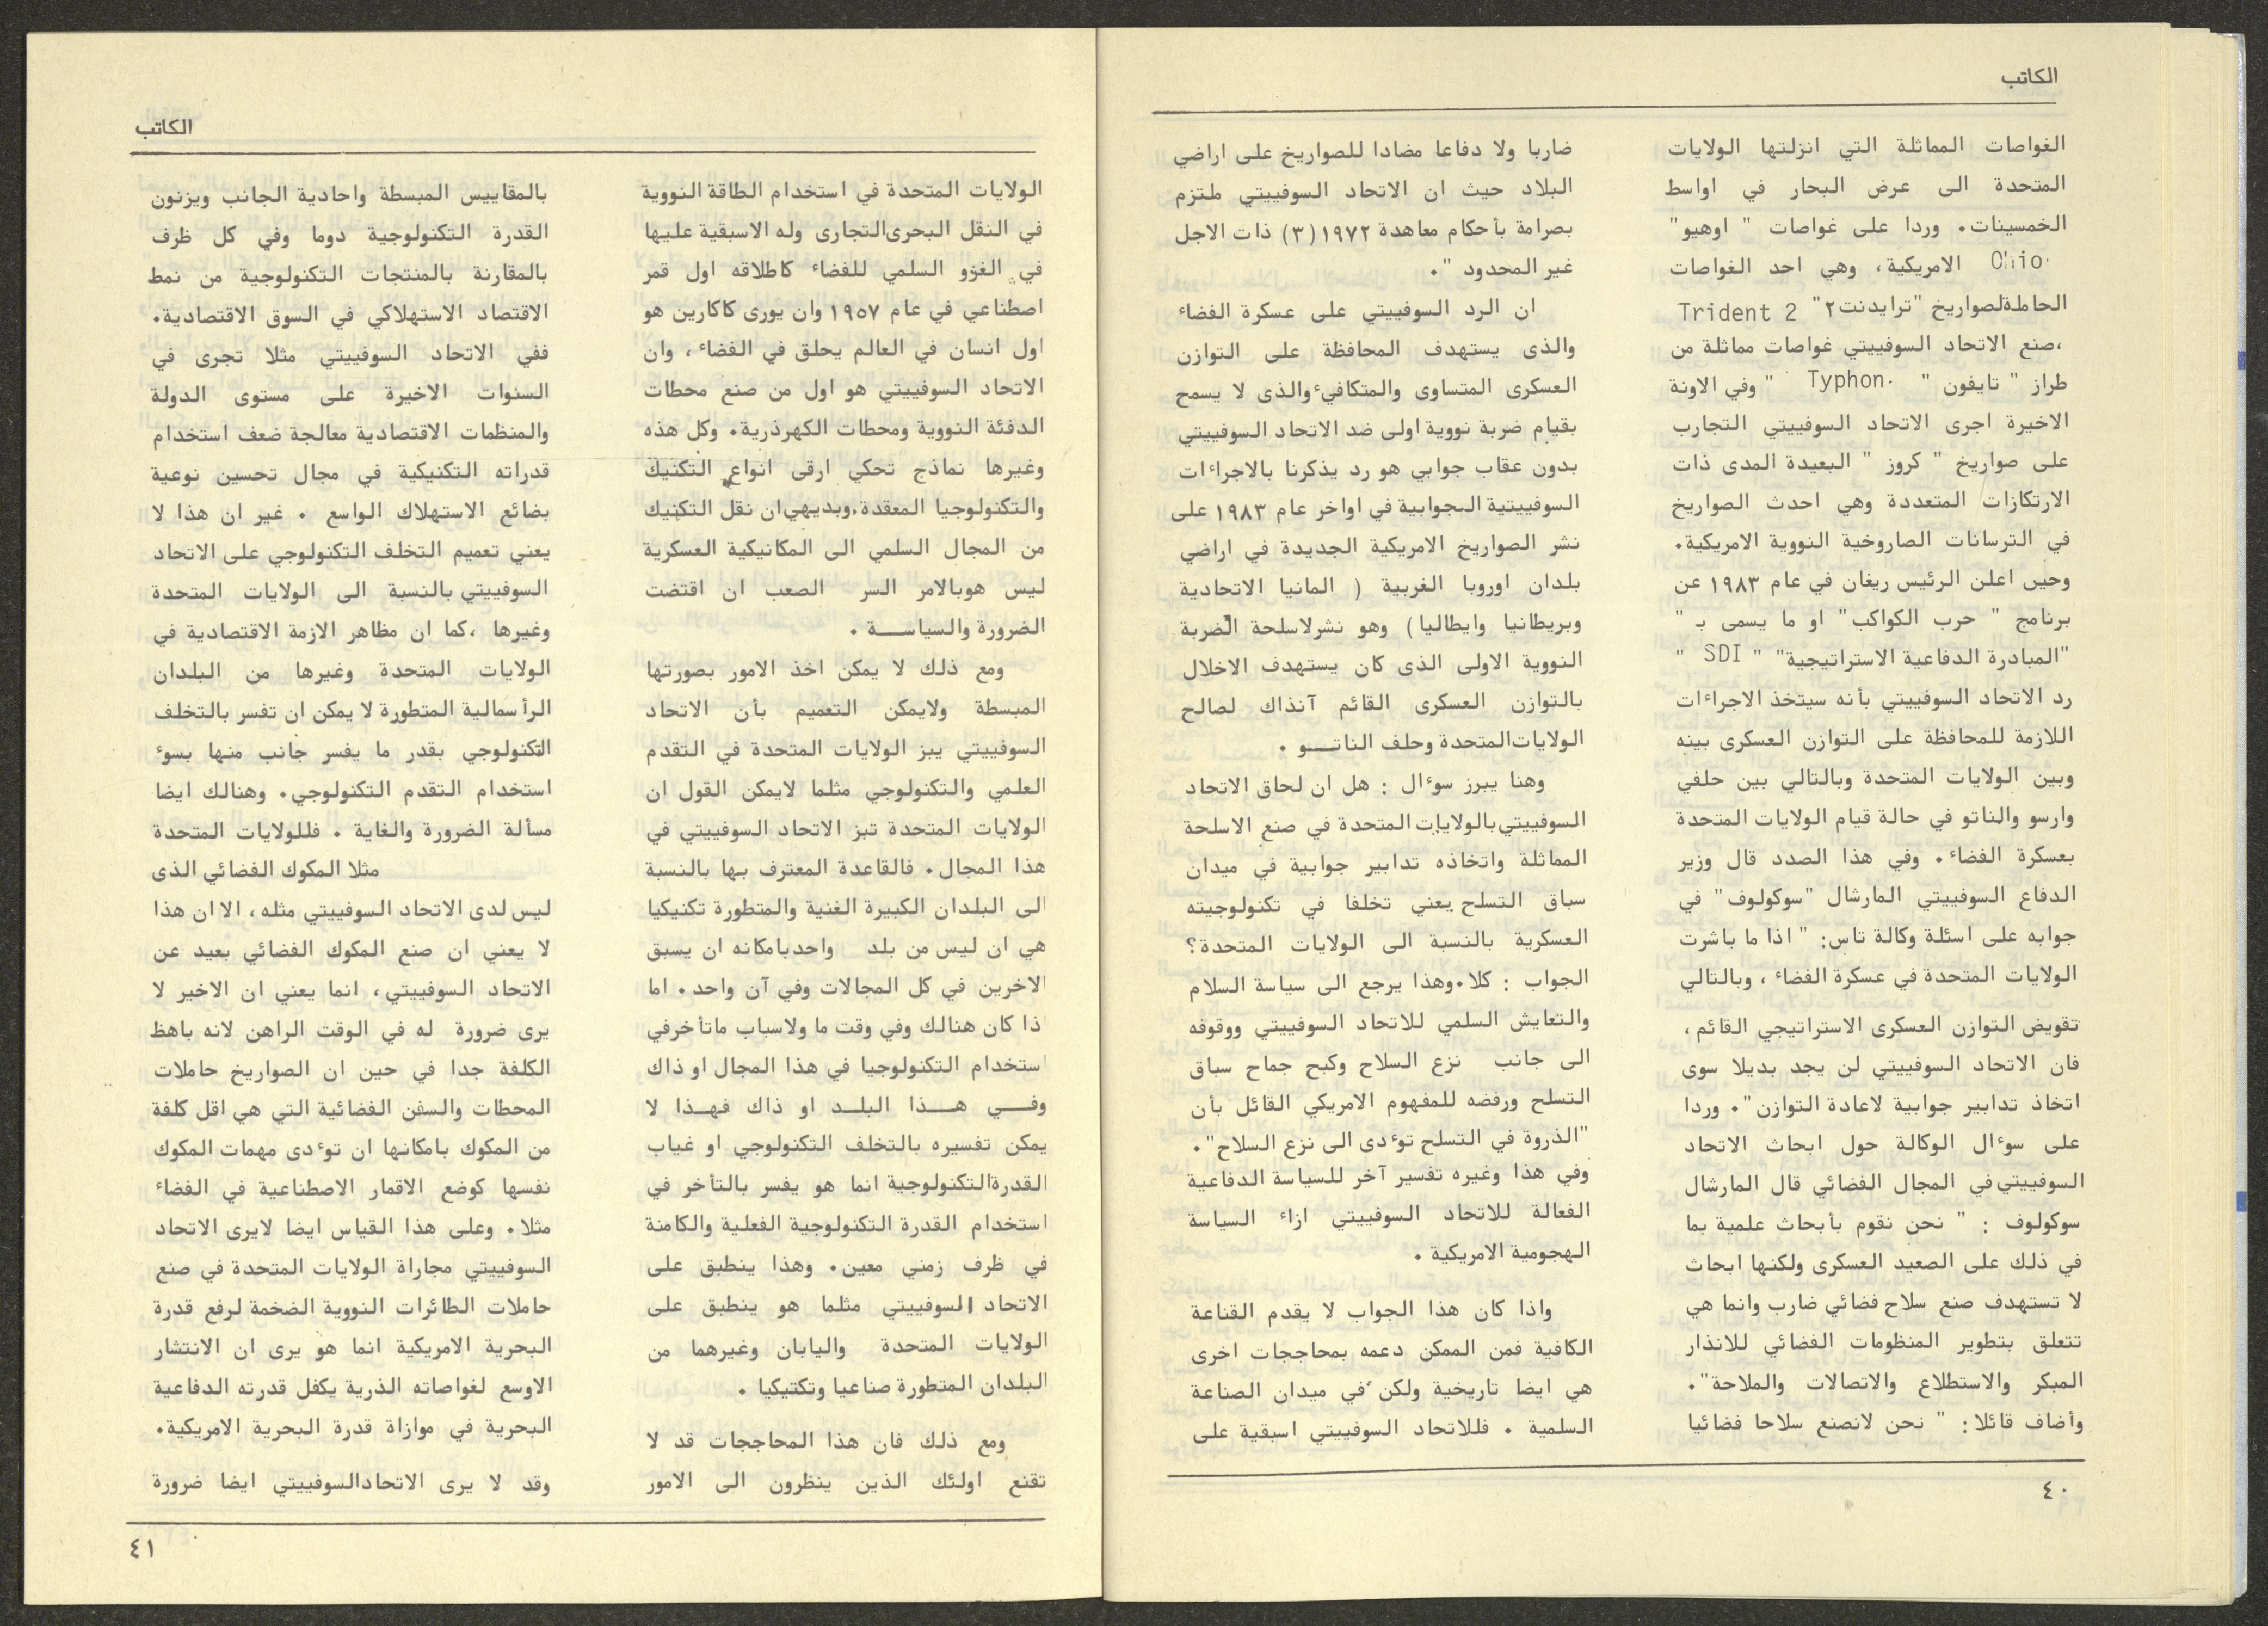 الكاتب
الغواصات المماثلة التي انزلتها الولايات
المتحدة الى عرض البحار في اواسط
الخمسينات. وردا على غواصات " اوهيو"
Ohio الامريكية، وهي احد الغواصات
الحاملةلصواريخ "ترايدنت٢" Trident 2
،صنع الاتحاد السوفييتي غواصات مماثلة من
طراز " تايفون " Typhon " وفي الاونة
الاخيرة اجرى الاتحاد السوفييتي التجارب
على صواريخ " كروز " البعيدة المدى ذات
الارتكازات المتعددة وهي احدث الصواريخ
في الترسانات الصاروخية النووية الامريكية.
وحين اعلن الرئيس ريغان في عام ١٩٨٣ عن
برنامج " حرب الكواكب" او ما يسمى بـ "
"المبادرة الدفاعية الاستراتيجية" " SDI "
رد الاتحاد السوفييتي بأنه سيتخذ الاجراءات
اللازمة للمحافظة على التوازن العسكرى بينه
وبين الولايات المتحدة وبالتالي بين حلفي
وارسو والناتو في حالة قيام الولايات المتحدة
بعسكرة الفضاء. وفي هذا الصدد قال وزير
الدفاع السوفييتي المارشال "سوكولوف" في
جوابه على اسئلة وكالة تاس: " اذا ما باشرت
الولايات المتحدة في عسكرة الفضاء ، وبالتالي
تقويض التوازن العسكرى الاستراتيجي القائم،
فان الاتحاد السوفييتي لن يجد بديلا سوى
اتخاذ تدابير جوابية لاعادة التوازن". وردا
على سوءال الوكالة حول ابحاث الاتحاد
السوفييتي في المجال الفضائي قال المارشال
سوكولوف : " نحن نقوم بأبحاث علمية بما
في ذلك على الصعيد العسكرى ولكنها ابحاث
لا تستهدف صنع سلاح فضائي ضارب وانما هي
تتعلق بتطوير المنظومات الفضائي للانذار
المبكر والاستطلاع والاتصالات والملاحة".
وأضاف قائلا: " نحن لانصنع سلاحا فضائيا
ضاربا ولا دفاعا مضادا للصواريخ على اراضي
البلاد حيث ان الاتحاد السوفييتي ملتزم
بصرامة بأحكام معاهدة ١٩٧٢(٣) ذات الاجل
غير المحدود ".
ان الرد السوفييتي على عسكرة الفضاء
والذى يستهدف المحافظة على التوازن
العسكرى المتساوى والمتكافيء والذى لا يسمح
بقيام ضربة نووية اولى ضد الاتحاد السوفييتي
بدون عقاب جوابي هو رد يذكرنا بالاجراءات
السوفييتية الجوابية في اواخر عام ١٩٨٣ على
نشر الصواريخ الامريكية الجديدة في اراضي
بلدان اوروبا الغربية ( المانيا الاتحادية
وبريطانيا وايطاليا) وهو نشرلاسلحة الضربة
النووية الاولى الذى كان يستهدف الاخلال
بالتوازن العسكرى القائم آنذاك لصالح
الولايات المتحدة وحلف الناتــو .
وهنا يبرز سوءال : هل ان لحاق الاتحاد
السوفييتي بالولايات المتحدة في صنع الاسلحة
المماثلة واتخاذه تدابير جوابية في ميدان
سباق التسلح يعني تخلفا في تكنولوجيته
العسكرية بالنسبة الى الولايات المتحدة؟
الجواب : كلا.وهذا يرجع الى سياسة السلام
والتعايش السلمي للاتحاد السوفييتي ووقوفه
الى جانب نزع السلاح وكبح جماح سباق
التسلح ورفضه للمفهوم الامريكي القائل بأن
"الذروة في التسلح توءدى الى نزع السلاح".
وفي هذا وغيره تفسير آخر للسياسة الدفاعية
الفعالة للاتحاد السوفييتي ازاء السياسة
الهجومية الامريكية .
واذا كان هذا الجواب لا يقدم القناعة
الكافية فمن الممكن دعمه بمحاججات اخرى
هي ايضا تاريخية ولكن في ميدان الصناعة
السلمية . فللاتحاد السوفييتي اسبقية على
٤٠
الكاتب
الولايات المتحدة في استخدام الطاقة النووية
في النقل البحرى التجارى وله الاسبقية عليها
في الغزو السلمي للفضاء كاطلاقه اول قمر
اصطناعي في عام ١٩٥٧ وان يورى كاكارين هو
اول انسان في العالم يحلق في الفضاء ، وان
الاتحاد السوفييتي هو اول من صنع محطات
الدفئة النووية ومحطات الكهرذرية. وكل هذه
وغيرها نماذج تحكي ارقى انواع التكنيك
والتكنولوجيا المعقدة.وبديهي ان نقل التكنيك
من المجال السلمي الى المكانيكية العسكرية
ليس هوبالامر السر الصعب ان اقتضت
الضرورة والسياســـة .
ومع ذلك لا يمكن اخذ الامور بصورتها
المبسطة ولايمكن التعميم بأن الاتحاد
السوفييتي يبز الولايات المتحدة في التقدم
العلمي والتكنولوجي مثلما لايمكن القول ان
الولايات المتحدة تبز الاتحاد السوفييتي في
هذا المجال. فالقاعدة المعترف بها بالنسبة
الى البلدان الكبيرة الغنية والمتطورة تكنيكيا
هي ان ليس من بلد واحدبامكانه ان يسبق
الاخرين في كل المجالات وفي آن واحد. اما
اذا كان هنالك وفي وقت ما ولاسباب ماتأخرفي
استخدام التكنولوجيا في هذا المجال او ذاك
وفــي هــذا البلــد او ذاك فهــذا لا
يمكن تفسيره بالتخلف التكنولوجي او غياب
القدرةالتكنولوجية انما هو يفسر بالتأخر في
استخدام القدرة التكنولوجية الفعلية والكامنة
في ظرف زمني معين. وهذا ينطبق على
الاتحاد السوفييتي مثلما هو ينطبق على
الولايات المتحدة واليابان وغيرهما من
البلدان المتطورة صناعيا وتكتيكيا .
ومع ذلك فان هذا المحاججات قد لا
تقنع اولئك الذين ينظرون الى الامور
بالمقاييس المبسطة واحادية الجانب ويزنون
القدرة التكنولوجية دوما وفي كل ظرف
بالمقارنة بالمنتجات التكنولوجية من نمط
الاقتصاد الاستهلاكي في السوق الاقتصادية.
ففي الاتحاد السوفييتي مثلا تجرى في
السنوات الاخيرة على مستوى الدولة
والمنظمات الاقتصادية معالجة ضعف استخدام
قدراته التكنيكية في مجال تحسين نوعية
بضائع الاستهلاك الواسع . غير ان هذا لا
يعني تعميم التخلف التكنولوجي على الاتحاد
السوفييتي بالنسبة الى الولايات المتحدة
وغيرها ،كما ان مظاهر الازمة الاقتصادية في
الولايات المتحدة وغيرها من البلدان
الرأسمالية المتطورة لا يمكن ان تفسر بالتخلف
التكنولوجي بقدر ما يفسر جانب منها بسوء
استخدام التقدم التكنولوجي. وهنالك ايضا
مسألة الضرورة والغاية . فللولايات المتحدة
مثلا المكوك الفضائي الذى
ليس لدى الاتحاد السوفييتي مثله، الا ان هذا
لا يعني ان صنع المكوك الفضائي بعيد عن
الاتحاد السوفييتي، انما يعني ان الاخير لا
يرى ضرورة له في الوقت الراهن لانه باهظ
الكلفة جدا في حين ان الصواريخ حاملات
المحطات والسفن الفضائية التي هي اقل كلفة
من المكوك بامكانها ان توءدى مهمات المكوك
نفسها كوضع الاقمار الاصطناعية في الفضاء
مثلا. وعلى هذا القياس ايضا لايرى الاتحاد
السوفييتي مجاراة الولايات المتحدة في صنع
حاملات الطائرات النووية الضخمة لرفع قدرة
البحرية الامريكية انما هو يرى ان الانتشار
الاوسع لغواصاته الذرية يكفل قدرته الدفاعية
البحرية في موازاة قدرة البحرية الامريكية.
وقد لا يرى الاتحادالسوفييتي ايضا ضرورة
٤١